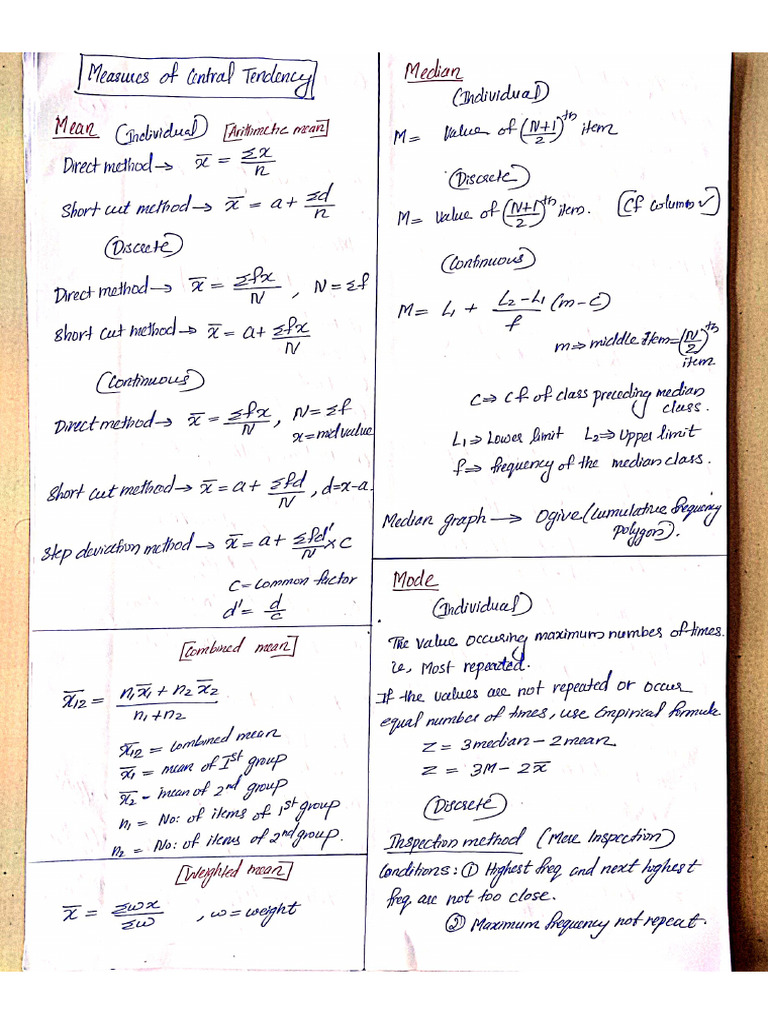 Measures of Central Tendency
Mean (Individual) [Arithmetic mean]
Direct method → x̄ = Σx/n
Short cut method → x̄ = a + Σd/n
(Discrete)
Direct method → x̄ = Σfx/N , N = Σf
Short cut method → x̄ = a + Σfx/N
(Continuous)
Direct method → x̄ = Σfx/N , N = Σf
x = mid value
Short cut method → x̄ = a + Σfd/N , d = x-a
Step deviation method → x̄ = a + Σfd'/N × C
C = Common factor
d' = d/c
[Combined mean]
x̄12 = n1x̄1 + n2x̄2 / n1+n2
x̄12 = Combined mean
x̄1 = mean of Ist group
x̄2 - mean of 2nd group
n1 = No: of items of 1st group
n2 = No: of items of 2nd group.
[Weighted mean]
x̄ = Σwx/Σw , w = weight
Median
(Individual)
M = Value of (N+1/2)th item
(Discrete)
M = Value of (N+1/2)th item. (Cf column ✓)
(Continuous)
M = L1 + L2-L1/f (m-c)
m ⇒ middle item = (N/2)th
item
C ⇒ Cf of class preceding median
class.
L1 ⇒ Lower limit L2 ⇒ Upper limit
f ⇒ frequency of the median class.
Median graph → Ogive (Cumulative frequency
polygon).
Mode
(Individual)
The value occuring maximum number of times.
ie, Most repeated.
If the values are not repeated or occur
equal number of times, use Empirical formula
Z = 3median - 2mean
Z = 3M - 2x̄
(Discrete)
Inspection method (Mere Inspection)
Conditions: ① Highest freq and next highest
freq are not too close.
② Maximum frequency not repeat.